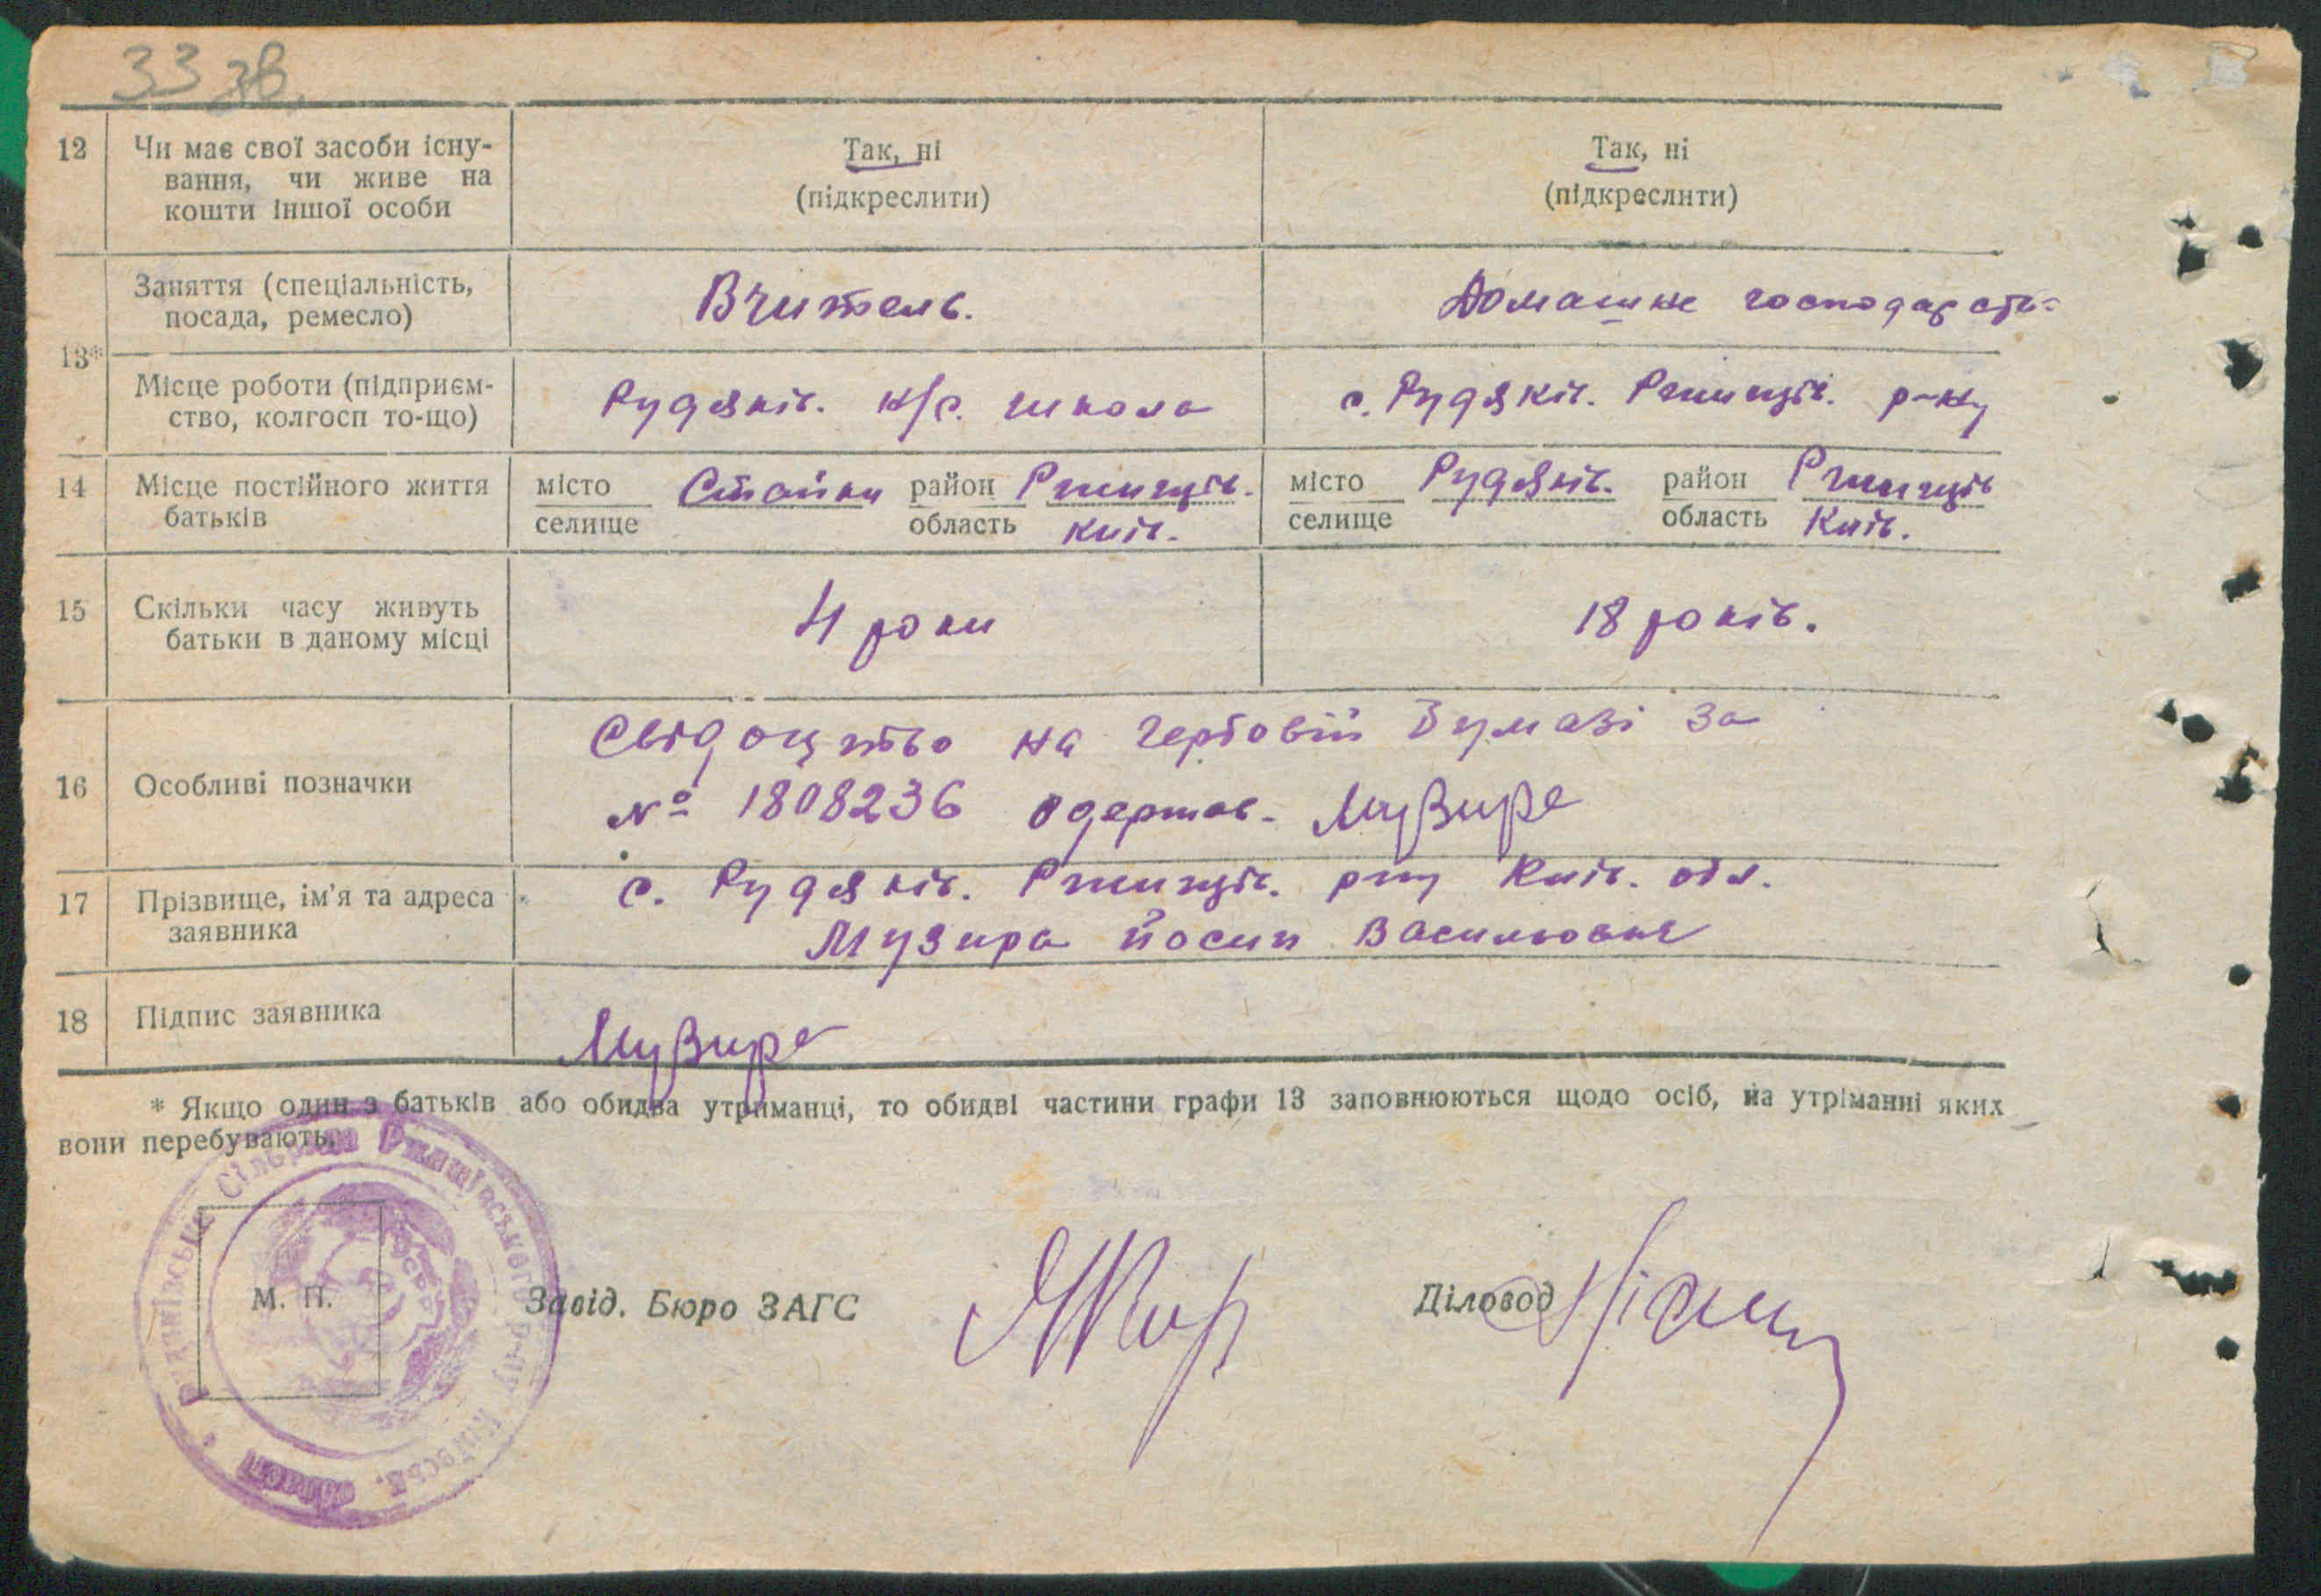 33 зв.
12 Чи має свої засоби існу- Так, ні Так, ні
вання, чи живе на (підкреслити) (підкреслити)
кошти іншої особи
13* Заняття (спеціальність, Вчитель. Домашнє господарств=
посада, ремесло)
Місце роботи (підприєм- Рудяків. н/с. школа с. Рудяків. Ржищів. р-ну
ство, колгосп то-що)
14 Місце постійного життя місто Стайки район Ржищів. місто Рудяків. район Ржищів
батьків селище область Київ. селище область Київ.
15 Скільки часу живуть 4 роки 18 років.
батьки в даному місці
Свідоцтво на гербовій бумазі за
16 Особливі позначки
№ 1808236 одержав. Музира
17 Прізвище, ім'я та адреса с. Рудяків. Ржищів. р-ну Київ. обл.
заявника Музира Йосип Васильович
18 Підпис заявника Музира
* Якщо один з батьків або обидва утриманці, то обидві частини графи 13 заповнюються щодо осіб, на утриманні яких
вони перебувають.
Рудяківська Сільрада Ржищівського р-ну Київськ. області
УСРР
М. П. Завід. Бюро ЗАГС Діловод